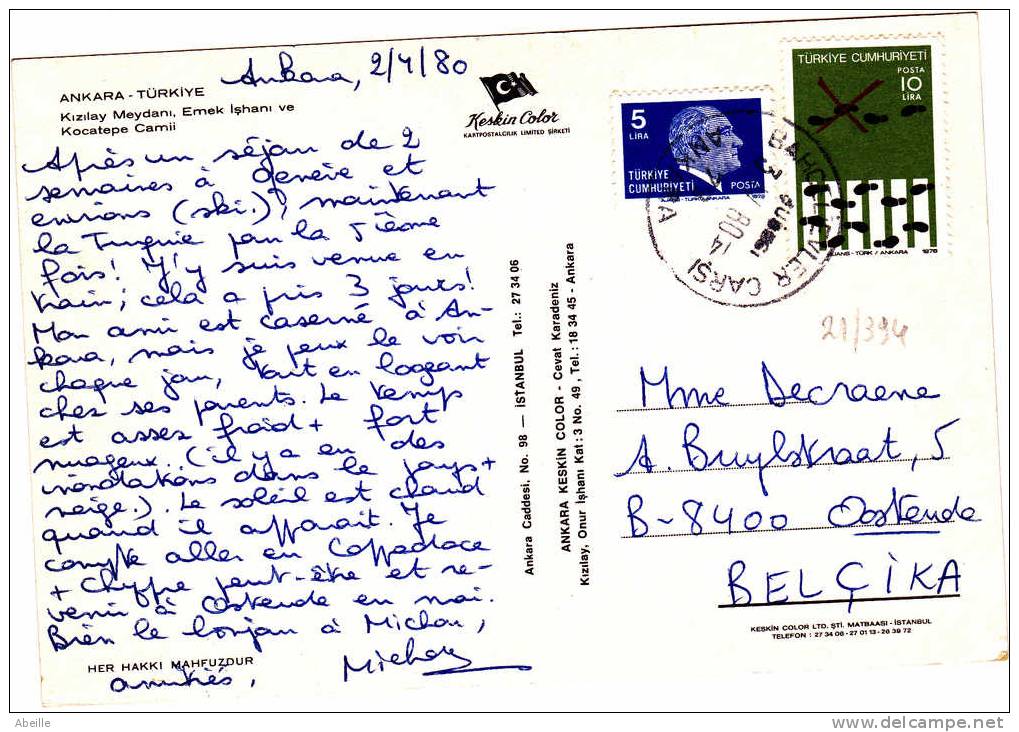 Ankara, 2/4/80
ANKARA - TÜRKİYE
Kızılay Meydanı, Emek İşhanı ve
Kocatepe Camii
Keskin Color
KARTPOSTALCILIK LIMITED ŞİRKETİ
Après un séjour de 2
semaines à Genève et
environs (ski.), maintenant
la Turquie pour la 5ième
fois! J'y suis venue en
train; cela a pris 3 jours!
Mon ami est caserné à An-
kara, mais je peux le voir
chaque jour, tout en logeant
chez ses parents. Le temps
est assez froid + fort
nuageux. (il y a eu des
inondations dans le pays +
neige.). Le soleil est chaud
quand il apparait. Je
compte aller en Cappadoce
+ Chypre peut-être et re-
venir à Ostende en mai.
Bien le bonjour à Michou,
amitiés,
HER HAKKI MAHFUZDUR
Ankara Caddesi. No. 98 — İSTANBUL Tel.: 27 34 06
ANKARA KESKİN COLOR - Cevat Karadeniz
Kızılay, Onur İşhanı Kat: 3 No. 49, Tel.: 18 34 45 - Ankara
5
LİRA
TÜRKİYE
CUMHURİYETİ
POSTA
AJANS-TÜRK/ANKARA
TÜRKİYE CUMHURİYETİ
POSTA
10
LİRA
AJANS-TÜRK / ANKARA 1978
BAHÇELİEVLER ÇARŞI
ANKARA
21/394
Mme Decraene
A. Buylstraat, 5
B-8400 Oostende
BELÇİKA
KESKİN COLOR LTD. ŞTİ. MATBAASI - İSTANBUL
TELEFON : 27 34 06 - 27 01 13 - 26 39 72
Abeille
www.delcampe.net